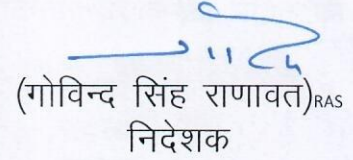 (गोविन्द सिंह राणावत)RAS
निदेशक